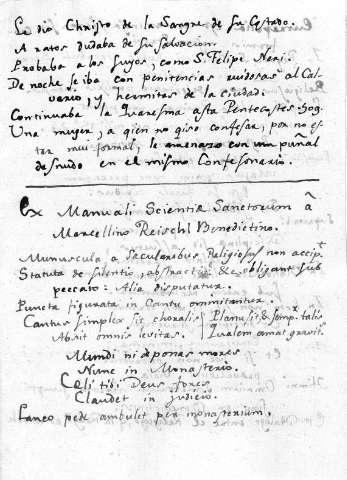 Le dio Christo de la Sangre de su Costado.
A ratos dudaba de su salvacion.
Probaba a los suyos, como S. Felipe Neri.
De noche se iba con penitencias ruidosas al Cal-
vario, y hermitas de la ciudad.
Continuaba la Quaresma asta Pentecostes
Una muger, a qien no qiso confesar, por no es-
tar muy formal, le amenazo con un puñal
desnudo en el mismo Confesonario.
Ex Manuali Scientiæ Sanctorum à
Marcellino Reischl Benedictino.
Munuscula a secularibus Religiosus non accip.t
Statuta de silentio, abstract. & obligant sub
peccato: Alia disputatur.
Puncta figurata in Cantu ommitantur.
Cantus simplex sit choralis Planus sit, & semp.r talis
Absit omnis levitas. Qualem amat gravit.s
Mundi ni deponas mores
Nunc in Monasterio.
Cœli tibi Deus fores
Claudet in judicio.
Laneo pede ambulet per monasterium.